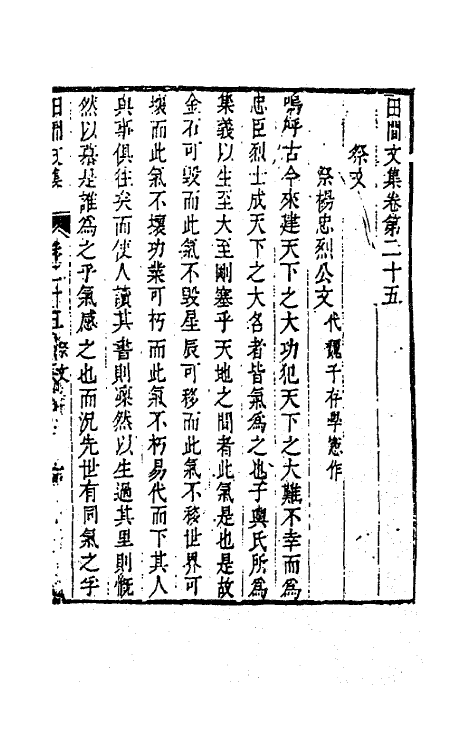 田間文集卷第二十五
祭文
祭楊忠烈公文代魏子存學憲作
嗚呼古今來建天下之大功犯天下之大難不幸而為
忠臣烈士成天下之大名者皆氣為之也子輿氏所為
集義以生至大至剛塞乎天地之間者此氣是也是故
金石可毀而此氣不毀星辰可移而此氣不移世界可
壞而此氣不壞功業可朽而此氣不朽易代而下其人
與事俱往矣而使人讀其書則凜然以生過其里則慨
然以慕是誰為之乎氣感之也而況先世有同氣之乎
田間文集 卷之二十五 祭文